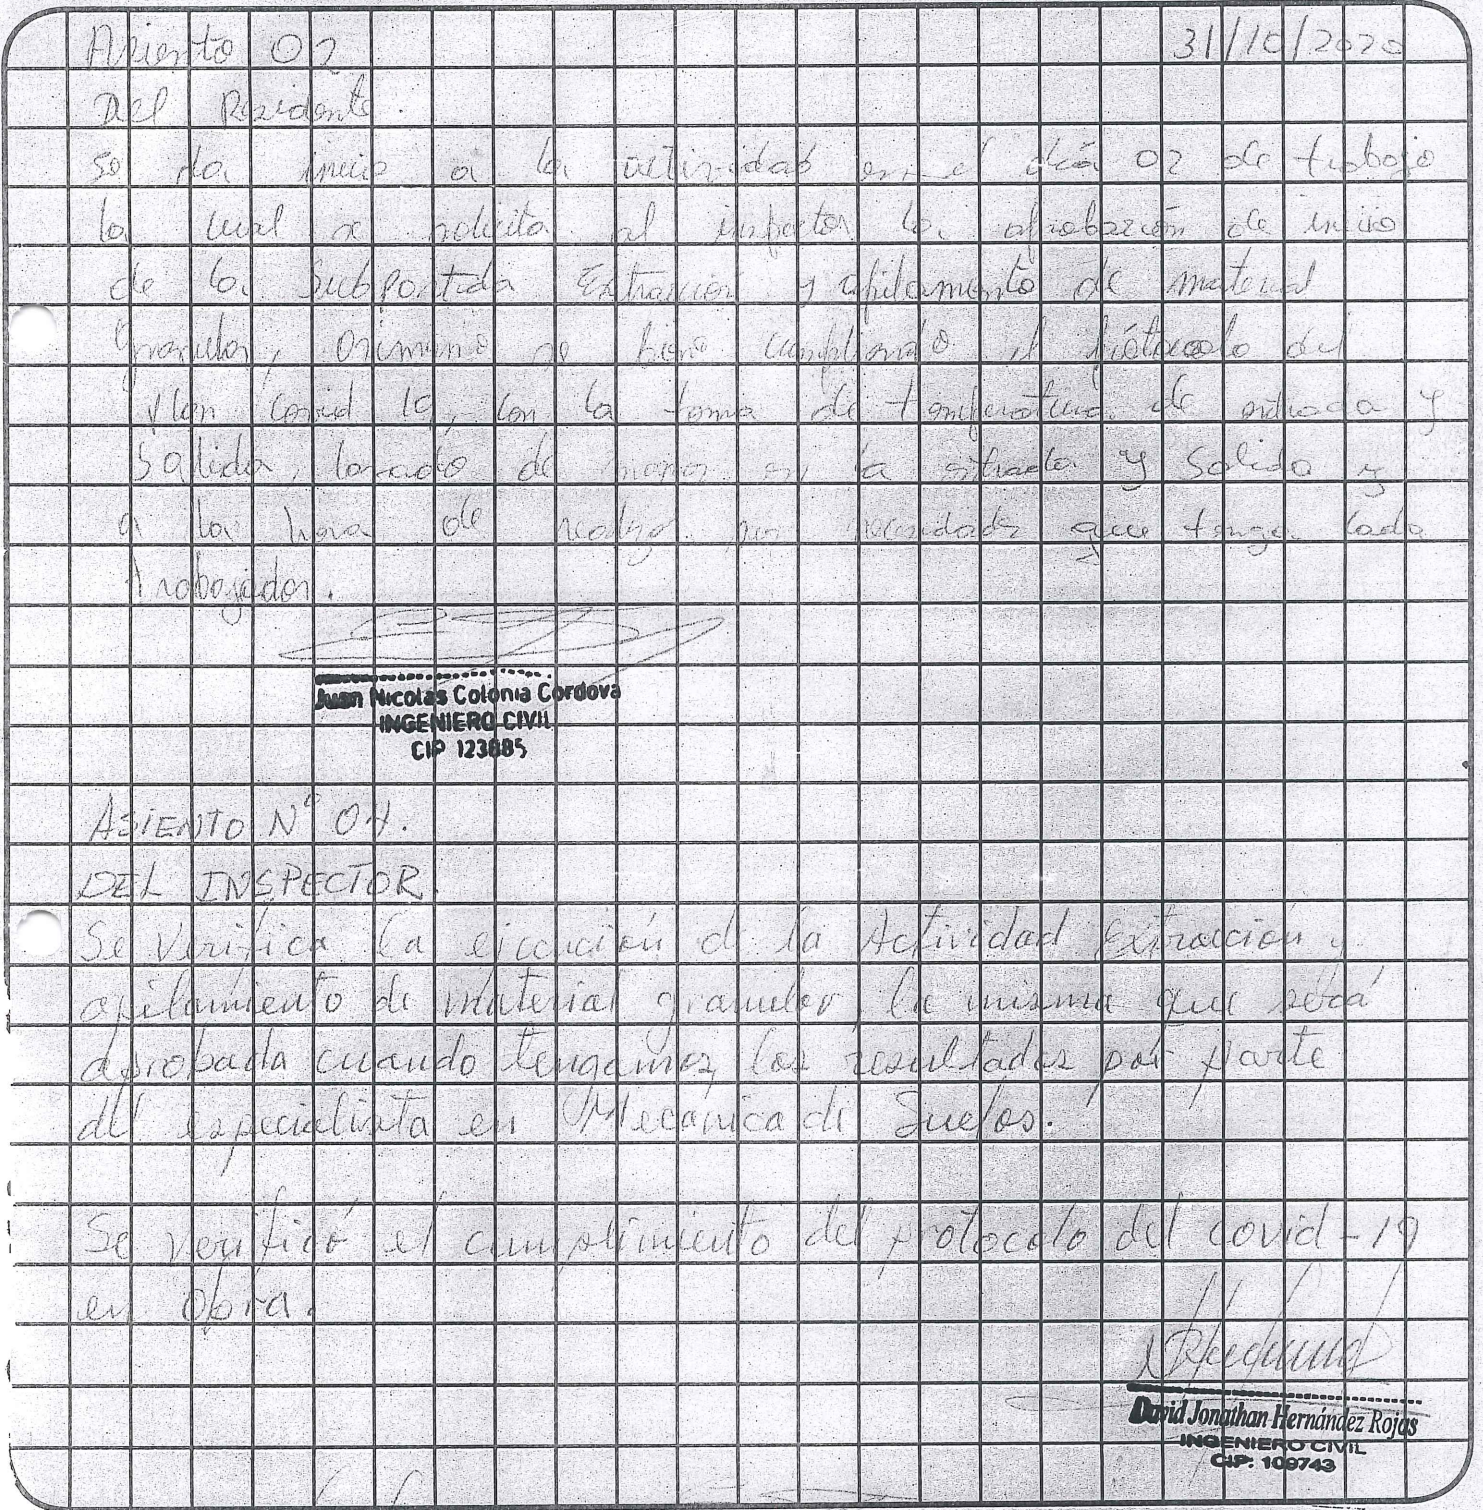 Asiento 02
31/10/2020
Del Residente.
Se da inicio a la actividad en el día 02 de trabajo
la cual se solicita al inspector la aprobación de inicio
de la Subpartida Extracción y apilamiento de material
granular, se viene cumpliendo el protocolo del
Plan covid 19, con la toma de temperatura de entrada y
Salida, lavado de manos en la entrada y Salida y
a la hora de necesidades que tenga cada
trabajador.
Juan Nicolas Colonia Cordova
INGENIERO CIVIL
CIP 123885
ASIENTO N° 04.
DEL INSPECTOR.
Se Verifica la ejecución de la Actividad Extracción y
apilamiento de material granular, la misma que será
aprobada cuando tengamos los resultados por parte
del especialista en Mecánica de Suelos.
Se verificó el cumplimiento del protocolo del covid-19
en obra.
David Jonathan Hernández Rojas
INGENIERO CIVIL
CIP: 109743